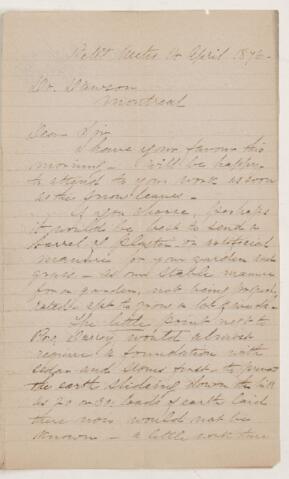 Petit Metis 24 April 1876
Dr. Dawson
Montreal
Dear Sir
I have your favour this
morning - I will be happy
to attend to your work as soon
as the snow leaves.
If you choose, perhaps
it would be best to send a
barrel of plaster or artificial
manure for your garden and
grass - as our stable manure
for a garden, not being
is apt to grow a lot of weeds.
The little point next to
would almost
require a foundation with
cedar and stones first to prevent
the earth sliding down the hill
as 20 or 30 loads of earth laid
there now would not be
known - a little work there